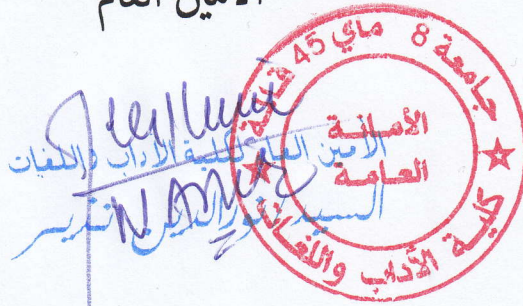 الأمين العام
جامعة 8 ماي 45 قالمة
الأمانة
العامة
كلية الآداب واللغات
الأمين العام لكلية الآداب واللغات
السيد نور الدين